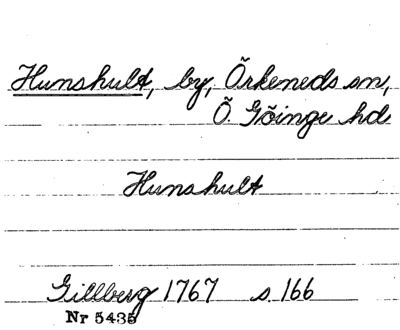 Hunshult, by, Örkeneds sn,
Ö. Göinge hd
Hunshult
Gillberg 1767 s. 166
Nr 5435